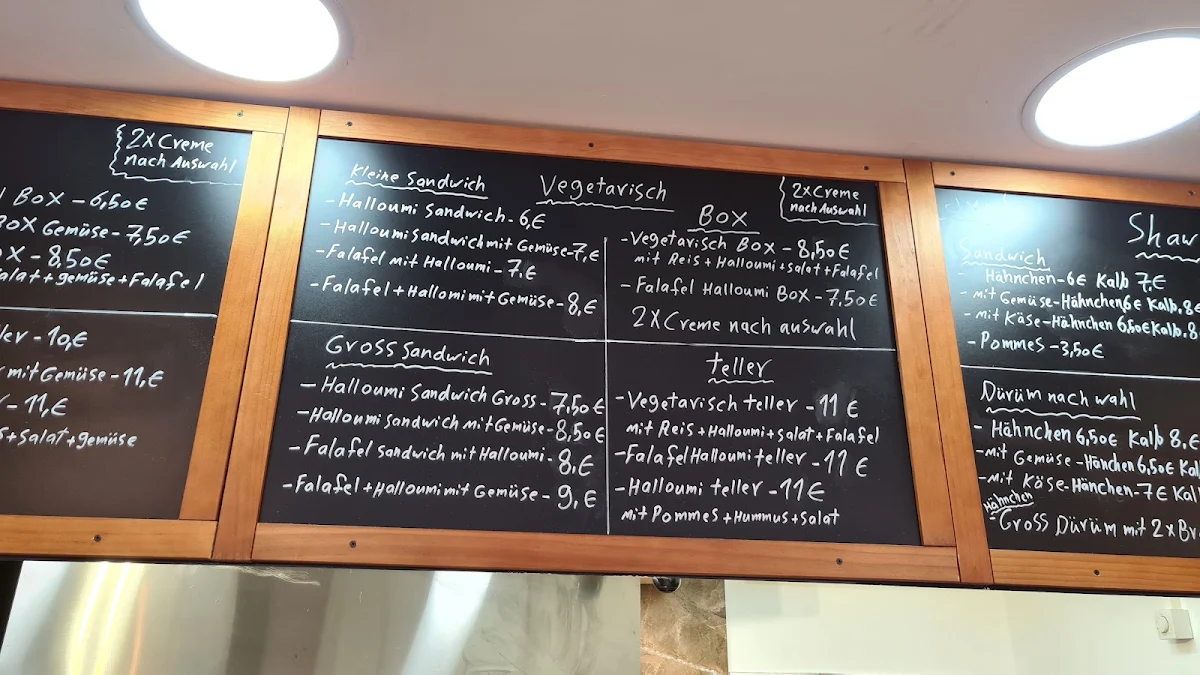 2xCreme
nach Auswahl
Box - 6,50€
Box Gemüse - 7,50€
- 8,50€
+ gemüse + Falafel
- 10,€
mit Gemüse - 11,€
- 11,€
+ Salat + gemüse
Vegetarisch
Kleine Sandwich
- Halloumi Sandwich - 6,€
- Halloumi Sandwich mit Gemüse - 7,€
- Falafel mit Halloumi - 7,€
- Falafel + Hallomi mit Gemüse - 8,€
2xCreme
nach Auswahl
Box
- Vegetarisch Box - 8,50€
mit Reis + Halloumi + Salat + Falafel
- Falafel Halloumi Box - 7,50€
2xCreme nach auswahl
Gross Sandwich
- Halloumi Sandwich Gross - 7,50€
- Halloumi Sandwich mit Gemüse - 8,50€
- Falafel Sandwich mit Halloumi - 8,€
- Falafel + Halloumi mit Gemüse - 9,€
teller
- Vegetarisch teller - 11 €
mit Reis + Halloumi + Salat + Falafel
- Falafel Halloumi teller - 11 €
- Halloumi teller - 11€
mit Pommes + Hummus + Salat
Shaw
Sandwich
- Hähnchen - 6€ Kalb 7€
- mit Gemüse - Hähnchen 6€ Kalb, 8€
- mit Käse - Hähnchen 6,50€ Kalb, 8
- Pommes - 3,50€
Dürüm nach wahl
- Hähnchen 6,50€ Kalb 8,€
- mit Gemüse - Hänchen 6,50€ Kal
- mit Köse - Hänchen - 7€ Kal
Hähnchen
- Gross Dürüm mit 2x Br